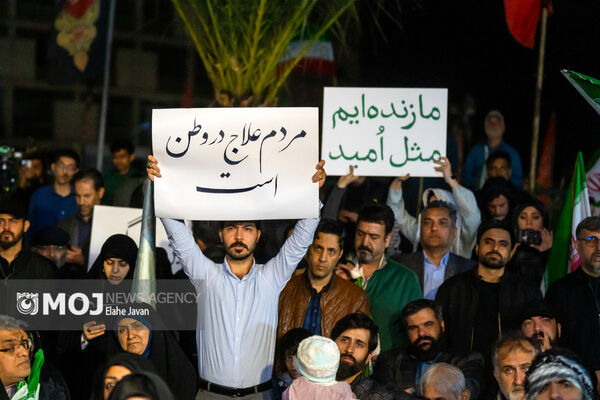 مردم علاج در وطن
است
ما زنده‌ایم
مثل اُمید
MOJ NEWS AGENCY
Photo: Elahe Javan